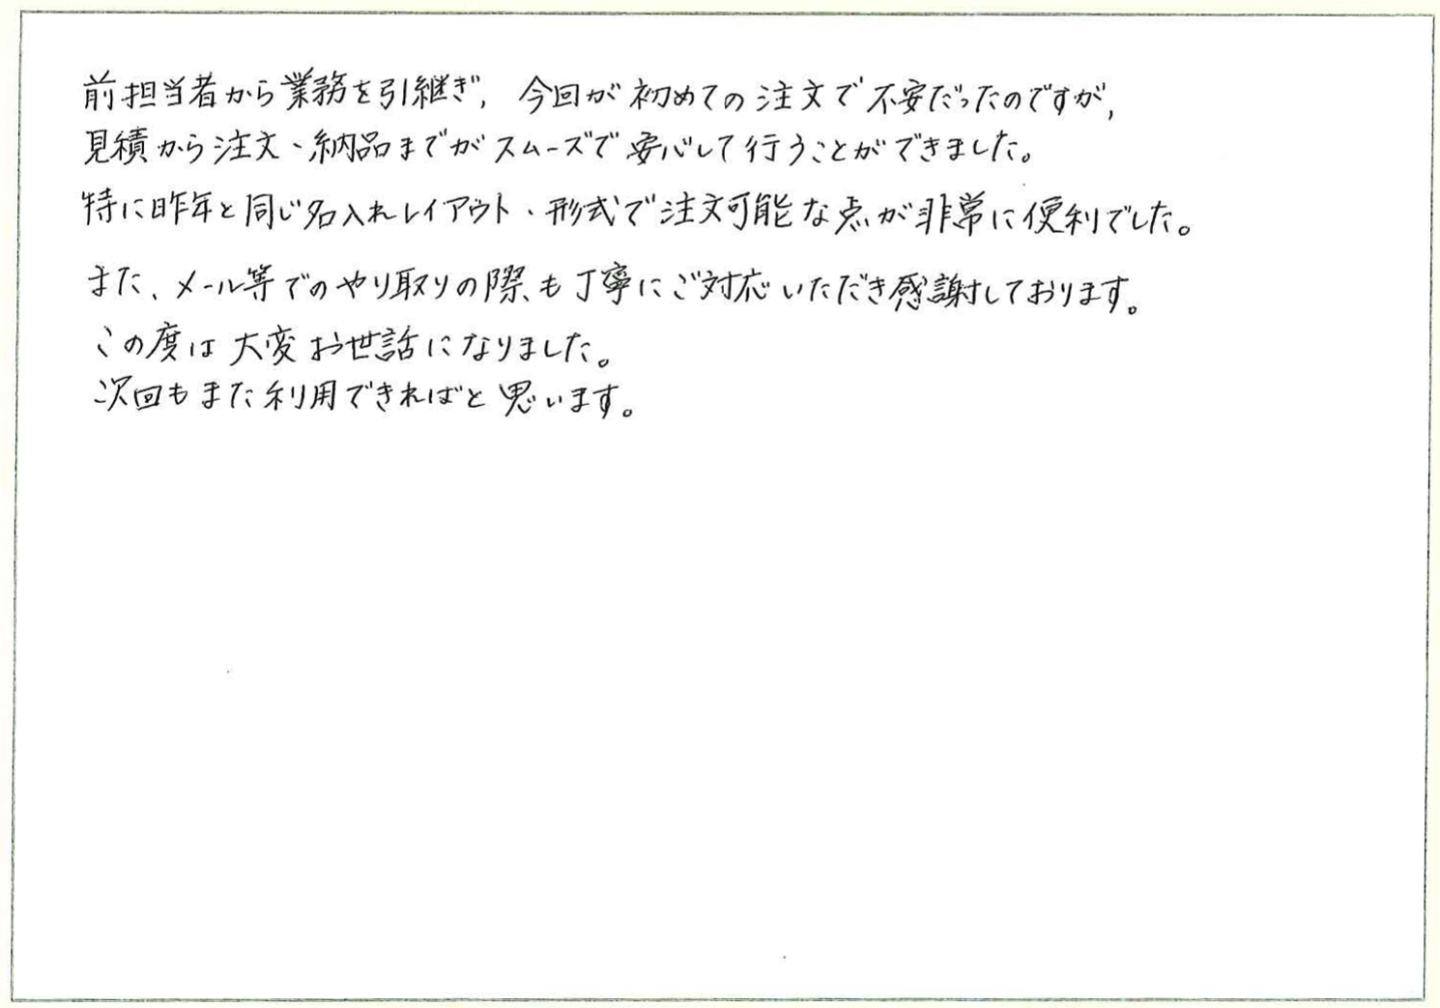 前担当者から業務を引継ぎ, 今回が初めての注文で不安だったのですが,
見積から注文、納品までがスムーズで安心して行うことができました。
特に昨年と同じ名入れレイアウト、形式で注文可能な点が非常に便利でした。
また、メール等でのやり取りの際も丁寧にご対応いただき感謝しております。
この度は大変お世話になりました。
次回もまた利用できればと思います。